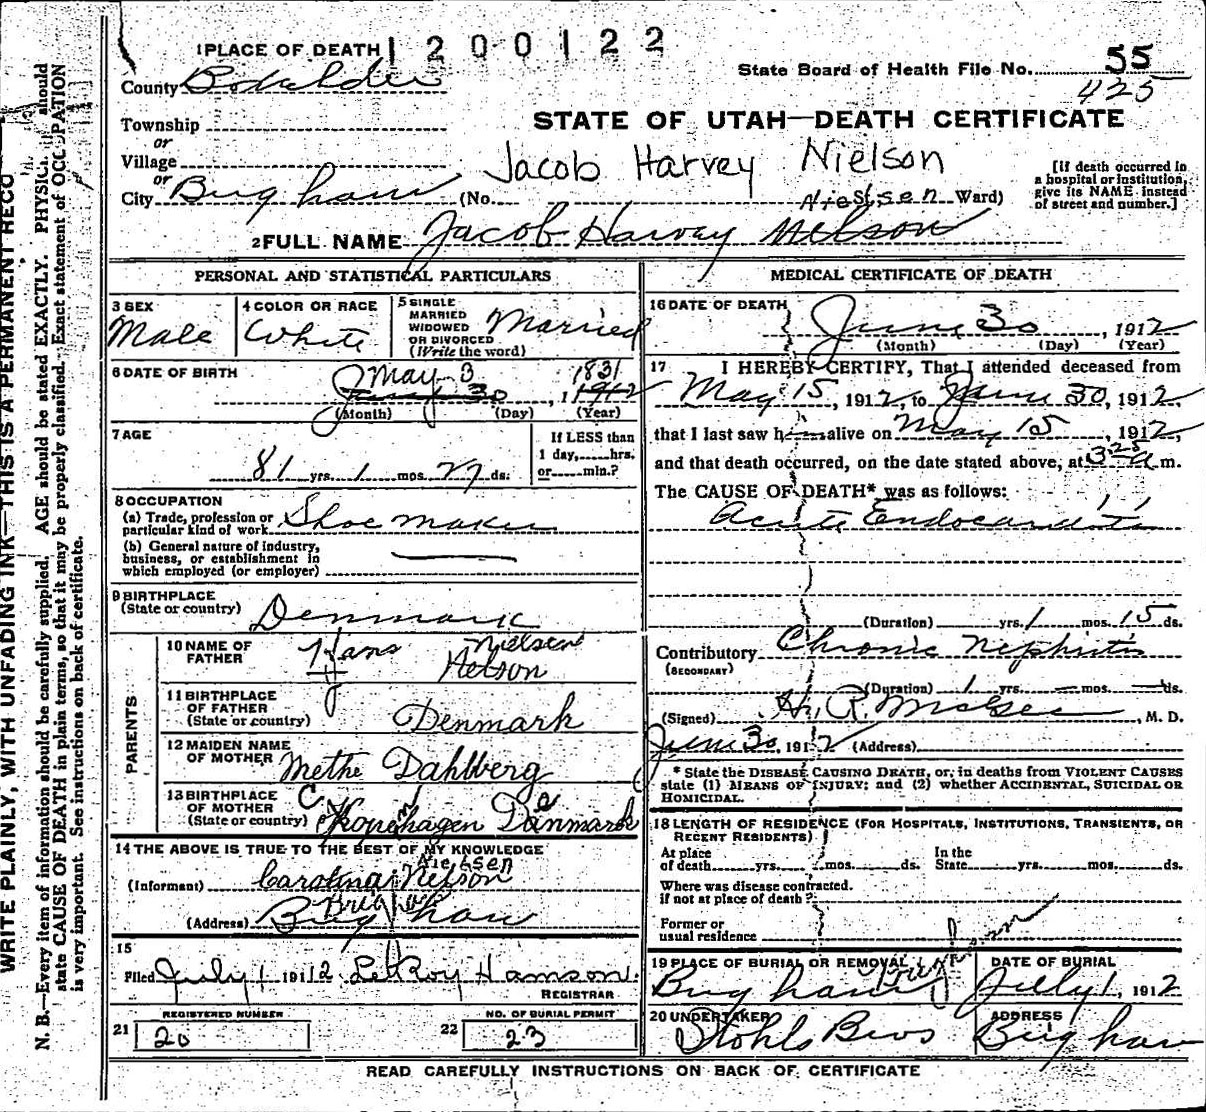 1 PLACE OF DEATH 1 2 0 0 1 2 2
County Boxelder
State Board of Health File No. 55
425
Township
or
Village
or
City Brigham
STATE OF UTAH—DEATH CERTIFICATE
Jacob Harvey Nielson
(No. St. Ward)
Nielsen
[If death occurred in
a hospital or institution,
give its NAME instead
of street and number.]
2 FULL NAME Jacob Harvey Nielson
PERSONAL AND STATISTICAL PARTICULARS
3 SEX
Male
4 COLOR OR RACE
White
5 SINGLE
MARRIED
WIDOWED
OR DIVORCED
(Write the word)
Married
6 DATE OF BIRTH
May 3 1831
June 30, 1912
(Month) (Day) (Year)
7 AGE
81 yrs. 1 mos. 27 ds.
If LESS than
1 day, hrs.
or min.?
8 OCCUPATION
(a) Trade, profession or
particular kind of work Shoe maker
(b) General nature of industry,
business, or establishment in
which employed (or employer)
9 BIRTHPLACE
(State or country) Denmark
PARENTS
10 NAME OF
FATHER
Hans Nielsen
Nelson
11 BIRTHPLACE
OF FATHER
(State or country) Denmark
12 MAIDEN NAME
OF MOTHER Methe Dahlberg
13 BIRTHPLACE
OF MOTHER
(State or country) Kopenhagen Danmark
14 THE ABOVE IS TRUE TO THE BEST OF MY KNOWLEDGE
Nielsen
(Informant) Carolina Nelson
Brigham
(Address) Brigham
15
Filed July 1 1912 LeRoy Hamson.
REGISTRAR
REGISTERED NUMBER
21 20
NO. OF BURIAL PERMIT
22 23
MEDICAL CERTIFICATE OF DEATH
16 DATE OF DEATH
June 30, 1912
(Month) (Day) (Year)
17 I HEREBY CERTIFY, That I attended deceased from
May 15, 1912, to June 30, 1912,
that I last saw him alive on May 15, 1912,
and that death occurred, on the date stated above, at 3 25 a m.
The CAUSE OF DEATH* was as follows:
Acute Endocarditis
(Duration) yrs. 1 mos. 15 ds.
Contributory Chronic Nephritis
(SECONDARY)
(Duration) 1 yrs. — mos. — ds.
(Signed) , M. D.
June 30, 1912 (Address)
* State the DISEASE CAUSING DEATH, or, in deaths from VIOLENT CAUSES
state (1) MEANS OF INJURY; and (2) whether ACCIDENTAL, SUICIDAL OR
HOMICIDAL.
18 LENGTH OF RESIDENCE (FOR HOSPITALS, INSTITUTIONS, TRANSIENTS, OR
RECENT RESIDENTS)
At place
of death yrs. mos. ds.
In the
State yrs. mos. ds.
Where was disease contracted.
if not at place of death?
Former or
usual residence
19 PLACE OF BURIAL OR REMOVAL
Brigham
Brigham
DATE OF BURIAL
July 1, 1912
20 UNDERTAKER
Stohls Bros
ADDRESS
Brigham
READ CAREFULLY INSTRUCTIONS ON BACK OF CERTIFICATE
WRITE PLAINLY, WITH UNFADING INK—THIS IS A PERMANENT RECO
N. B.—Every item of information should be carefully supplied. AGE should be stated EXACTLY. PHYSICI should
state CAUSE OF DEATH in plain terms, so that it may be properly classified. Exact statement of OCCUPATION
is very important. See instructions on back of certificate.